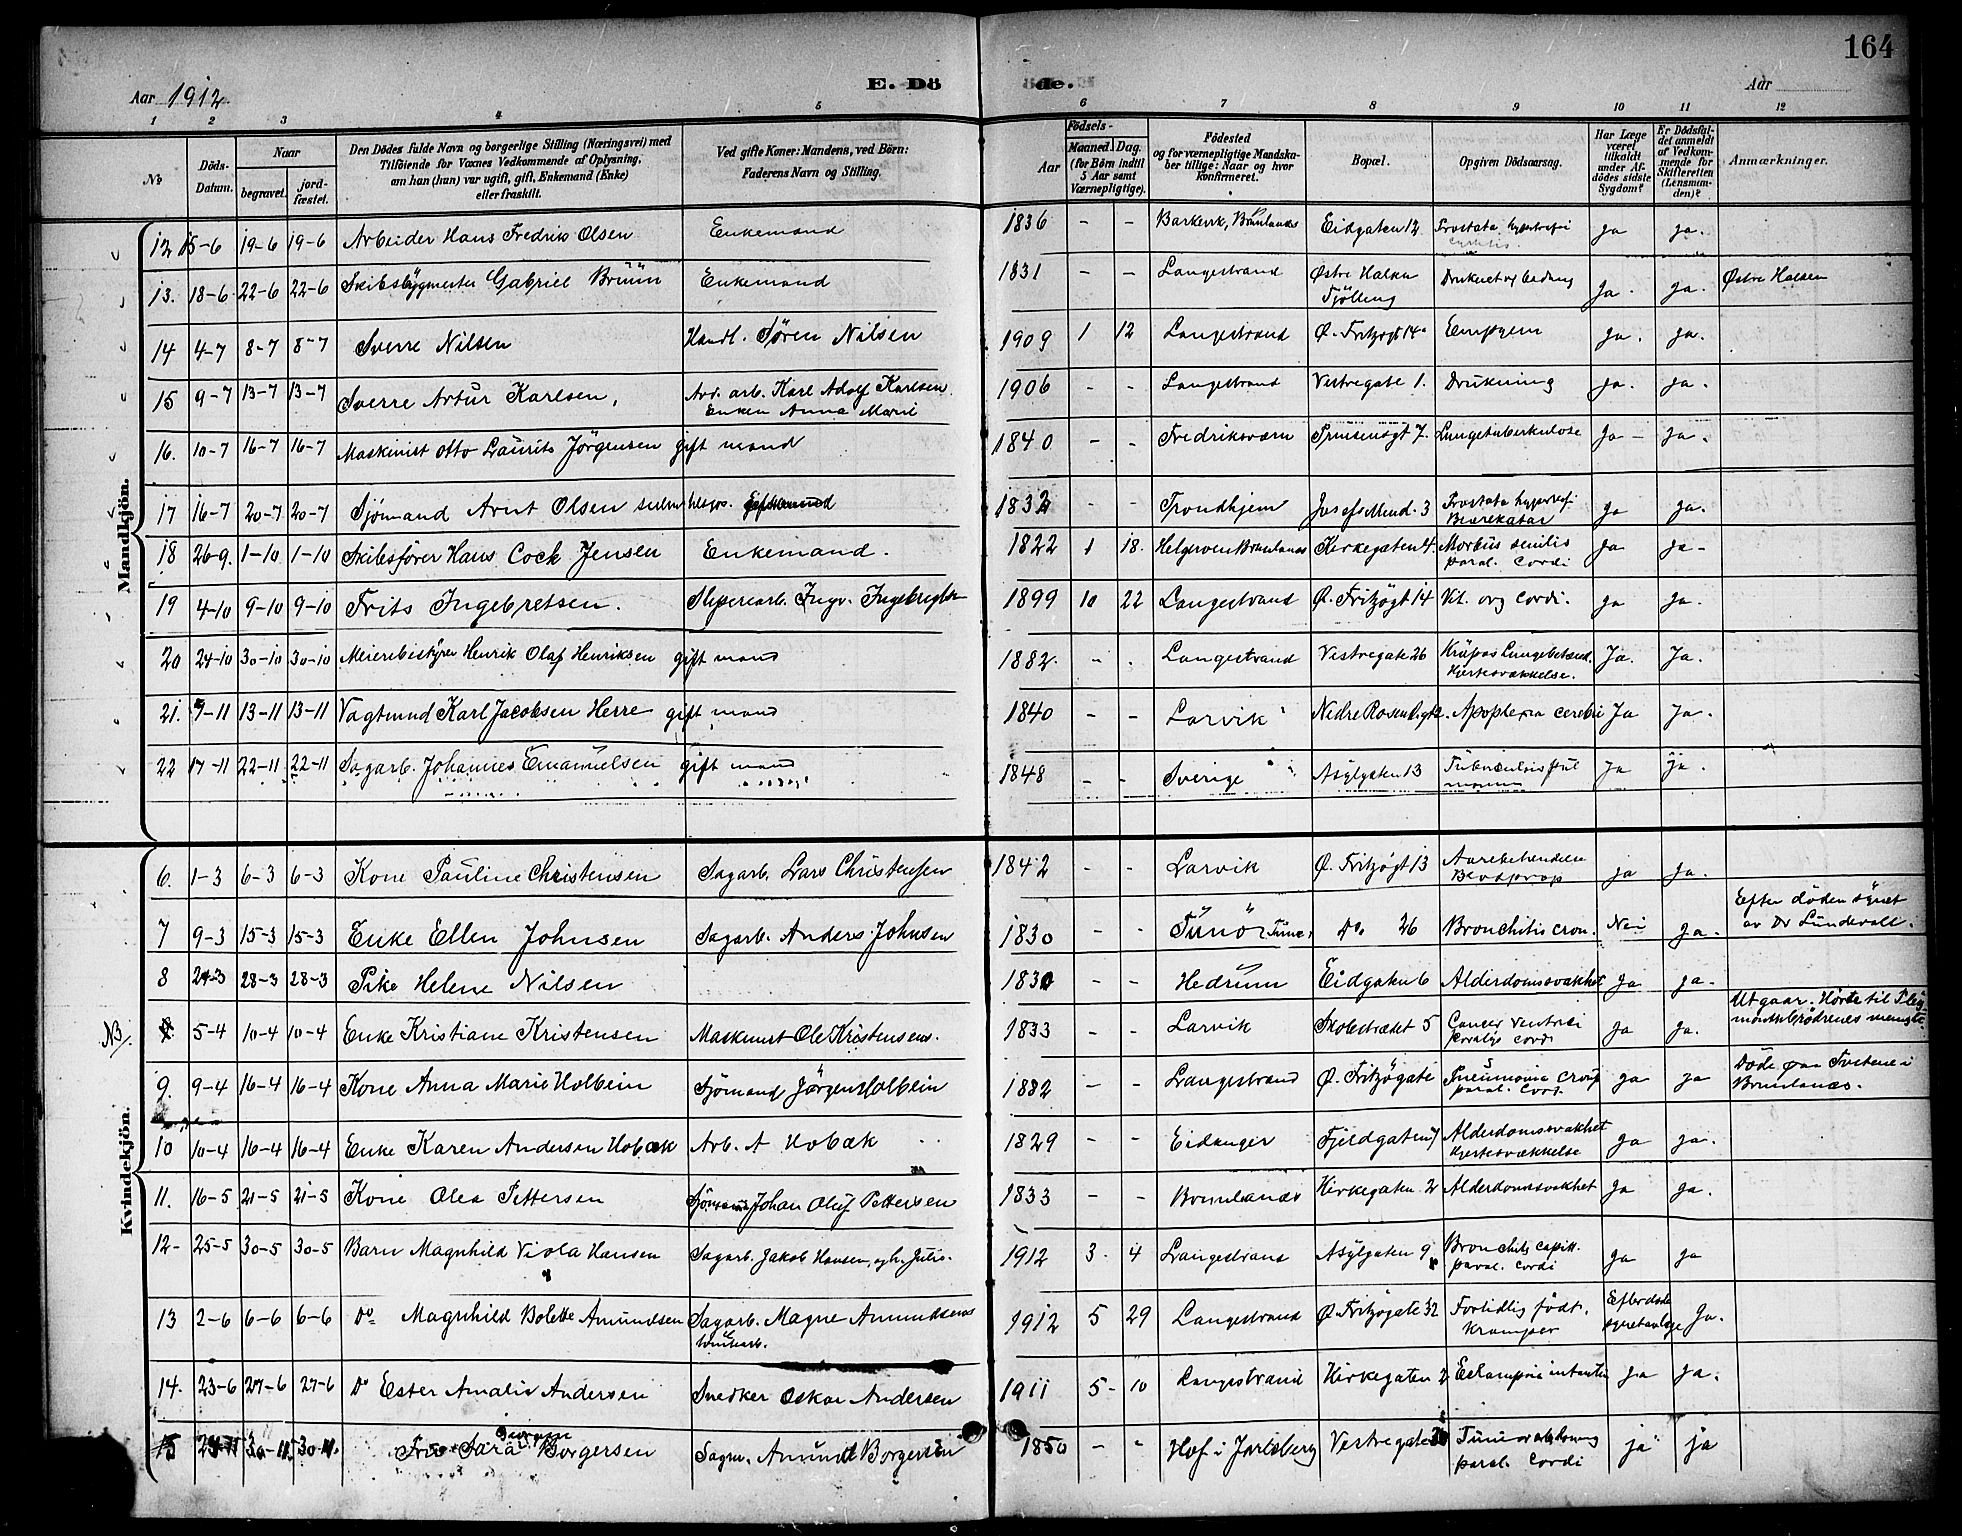 164
Aar 1912.
E. Dö de.
Aar
1 2 3 4 5 6 7 8 9 10 11 12
No Döds-Datum. Naar begravet. jordfæstet. Den Dödes fulde Navn og borgerlige Stilling (Næringsvei) med Tilföiende for Voxnes Vedkommende af Oplysning, om han (hun) var ugift, gift, Enkemand (Enke) eller fraskilt. Ved gifte Koner: Mandens, ved Börn: Faderens Navn og Stilling. Födsels- Aar Maaned. Dag. (for Börn indtil 5 Aar samt Værnepligtige). Födested og for værnepligtige Mandskaber tillige: Naar og hvor konfirmeret. Bopæl. Opgiven Dödsaarsag. Har Læge været tilkaldt under Afdödes sidste Sygdom? Er Dödsfaldet anmeldt af Vedkommende for Skifteretten (Lensmanden)? Anmærkninger.
Mandkjön.
12 15-6 19-6 19-6 Arbeider Hans Fredrik Olsen Enkemand 1836 - - Barkevik, Brunlanæs Eidgaten 12 Prostata hypertrofi ja ja.
13. 18-6 22-6 22-6 Skibsbygmester Gabriel Brüün Enkemand 1831 - - Langestrand Østre Halsen Tjölling Ja. ja. Østre Halsen
14 4-7 8-7 8-7 Sverre Nilsen Handl. Sören Nilsen 1909 1 12 Langestrand Ø. Fritzögt 14 Empyem ja. ja.
15 9-7 13-7 13-7 Sverre Artur Karlsen, Arb. Karl Adolf Karlsen
Enken Anna Marie 1906 - - Langestrand Vestregate 1. Drukning ja. ja.
16. 10-7 16-7 16-7 Maskinist Otto Laurits Jörgensen gift mand 1840 - - Fredriksværn Prinsensgt 7. Lungetuberkulose Ja - Ja.
17 16-7 20-7 20-7 Sjömand Arnt Olsen 1832 - - Trondhjem Josefs Mind. 3 Prostata hypertrofi
Blærekatar ja ja.
18 26-9. 1-10 1-10 Skibsförer Hans Cock Jensen Enkemand. 1822 1 18. Helgeroen Brunlanæs Kirkegaten 4. Morbus senilis
paral. cordi ja ja-
19 4-10 9-10 9-10 Frits Ingebretsen. Sliperearb. Ingv. Ingebretsen 1899 10 22 Langestrand Ø. Fritzögt 14 Vit. org cordi. ja ja.
20 24-10 30-10 30-10 Meieribestyrer Henrik Olaf Henriksen gift mand 1882. - - Langestrand Vestregate 26 Krüpøs Lungebetænd.
Hjertesvækkelse. Ja. Ja.
21. 7-11 13-11 13-11 Vagtmand Karl Jacobsen Herre gift mand 1840 - - Larvik Nedre Rosenb.gt 2. Apoplexia cerebri Ja Ja.
22 17-11 22-11 22-11 Sagarb. Johannes Emanuelsen gift mand 1848 - - Sverige Asylgaten 13 Tuberculosis pul
monum Ja ja.
Kvindekjön.
6. 1-3 6-3 6-3 Kone Pauline Christensen Sagarb. Lars Christensen 1842 - - Larvik Ø. Fritzögt 13 Aarebetændelse
Blodprop ja Ja.
7 9-3 15-3 15-3 Enke Ellen Johnsen Sagarb. Anders Johnsen 1830 - - Tunö Do 26 Bronchitis cron. Nei Ja. Efter döden synet
av Dr Lundevall.
8 24-3 28-3 28-3 Pike Helene Nilsen 1830 - - Hedrum Eidgaten 6 Alderdomssvakhet Ja ja.
NB. 5-4 10-4 10-4 Enke Kristiane Kristensen Maskinist Ole Kristensens. 1833 - - Larvik Skolestrædet 5 Cancer Ventriculi
paralys cordi Ja ja. Utgaar. Hörte til
brödrenes menigh.
9. 9-4 16-4 16-4 Kone Anna Marie Holbein Sjömand Jörgen Holbein 1882 - - Langestrand Ø. Fritzögate Pneumonia croup
paral. Cord. ja ja Döde paa Tvetene i
Brunlanæs.
10 10-4 16-4 16-4 Enke Karen Andersen Hobæk Arb. A Hobæk 1829 - - Eidanger Fjeldgaten 7 Alderdomssvakhet
Hjertesvækkelse ja ja.
11. 16-5 21-5 21-5 Kone Olea Pettersen Sjömand Johan Oluf Pettersen 1833 - - Brunlanæs Kirkegaten 2 Alderdomssvakhet ja ja.
12- 25-5 30-5 30-5 Barn Magnhild Viola Hansen Sagarb. Jakob Hansen, og h. Julie. 1912 3. 4 Langestrand Asylgaten 9 Bronchitis capill.
paral. cordi ja ja
13 2-6 6-6 6-6 Do Magnhild Bolette Amundsen Sagarb. Magne Amundsens 1912 5 29 Langestrand Ø. Fritzögate 32 Fortidlig födt.
Kramper Efter döde Ja.
14. 23-6 27-6 27-6 Do Ester Amalie Andersen Snedker Oskar Andersen 1911 5- 10 Langestrand Kirkegaten 2 Eclampsia infantil ja ja.
15 24-11 30-11. 30-11. Fru Sara Borgersen Sagm. Amund Borgersen 1850 - - Hof i Jarlsberg Vestregate
paral. Cordi ja ja